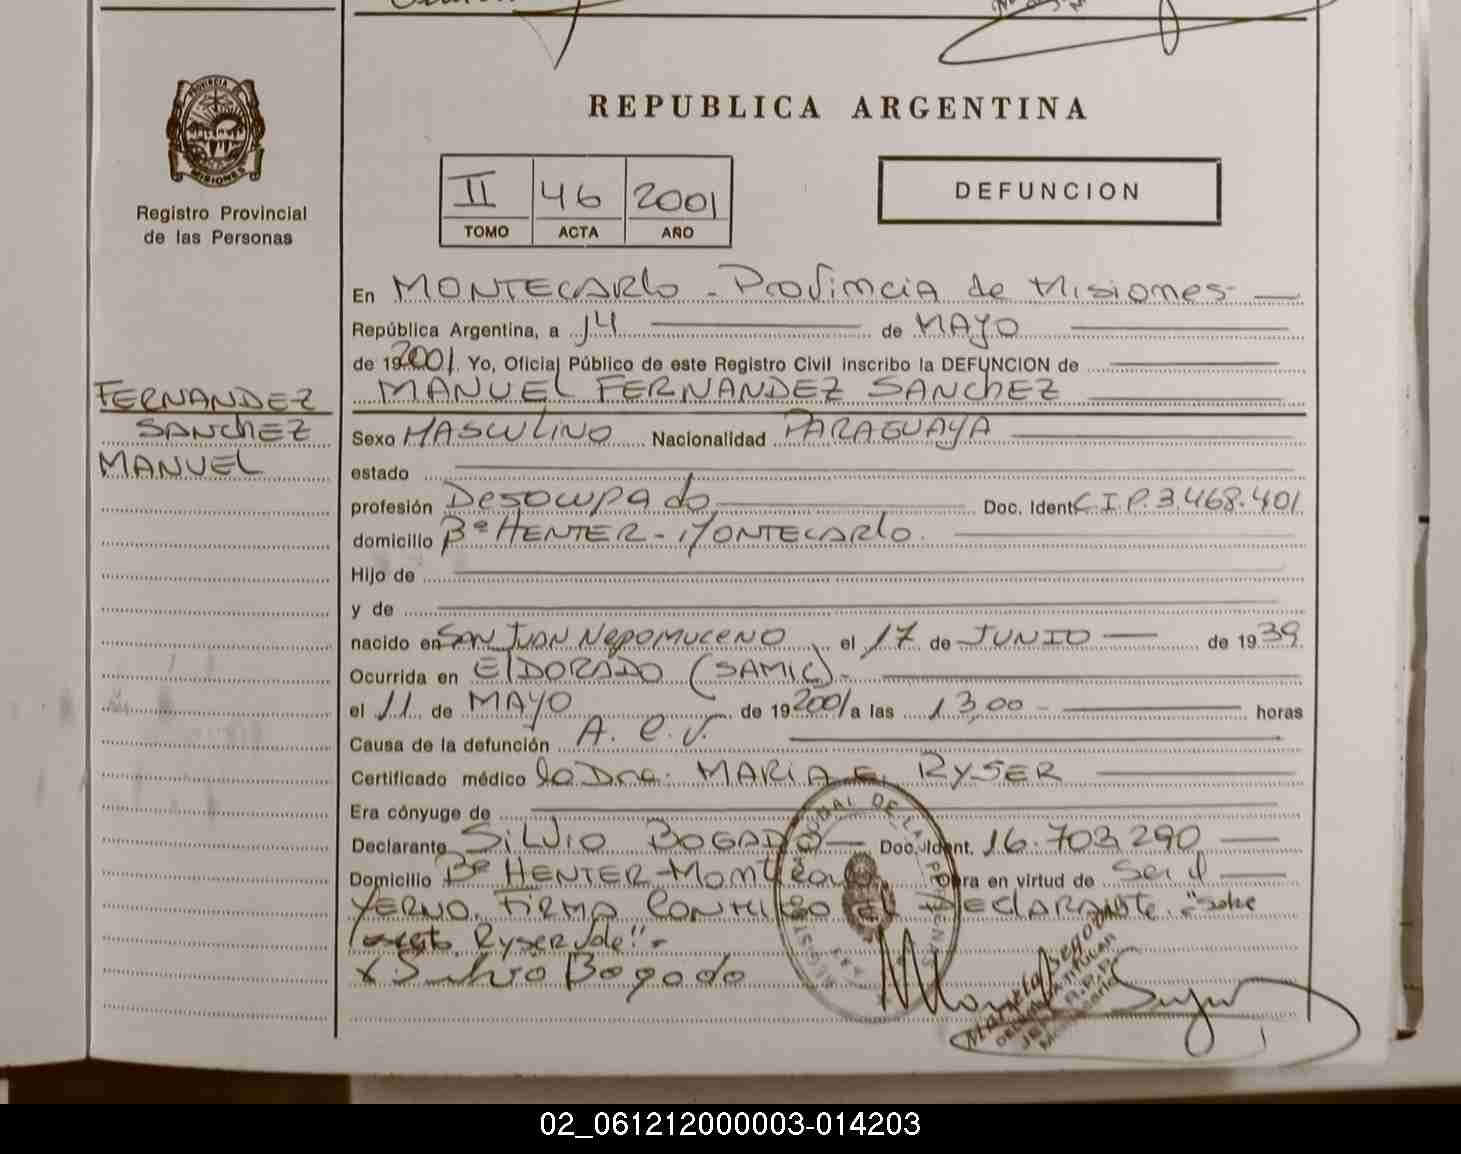 REPUBLICA ARGENTINA
PROVINCIA DE
MISIONES
Registro Provincial
de las Personas
II 46 2001
TOMO ACTA AÑO
DEFUNCION
En MONTECARlo - Provincia de Misiones
República Argentina, a 14 de MAYO
de 192001. Yo, Oficial Público de este Registro Civil inscribo la DEFUNCION de
MANUEL FERNANDEZ SANChEZ
FERNANDEZ
SANChEZ
MANUEL
Sexo MASCULINO Nacionalidad PARAGUAYA
estado
profesión Desocupado Doc. Ident. C.I.P. 3.468.401
domicilio Bº HENTER - MONTECARlo.
Hijo de
y de
nacido en SAN JUAN NepoMUCENO el 17 de JUNIO de 1939
Ocurrida en ElDORADO (SAMIC).-
el 11 de MAYO de 192001 a las 13,00 - horas
Causa de la defunción A. C. V.
Certificado médico la Dra. MARIA E. RYSER
Era cónyuge de
Declarante SilVIO BOGADO Doc. Ident. 16.703.290
Domicilio Bº HENTER - Montecarlo Obra en virtud de Ser el
YERNO. FIRMA CONMIGO El DEClARANTE. "Sobre
Ryser Vale".-
x Silvio Bogado
Mariela Segovia
02_061212000003-014203